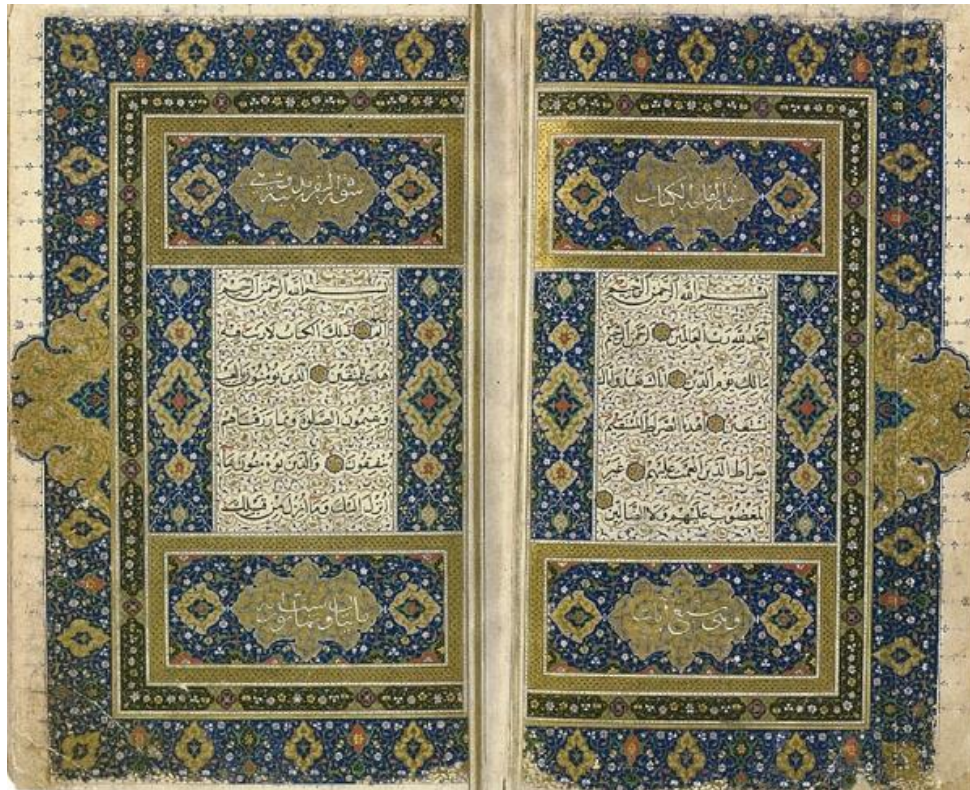 سورة فاتحة الكتاب
بسم الله الرحمن الرحيم
الحمد لله رب العالمين الرحمن الرحيم
مالك يوم الدين اياك نعبد واياك
نستعين اهدنا الصراط المستقيم
صراط الذين انعمت عليهم غير
المغضوب عليهم ولا الضالين
وهي سبع آيات
سورة البقرة مدنية وهي
بسم الله الرحمن الرحيم
الم ذلك الكتاب لا ريب فيه
هدى للمتقين الذين يؤمنون بالغيب
ويقيمون الصلوة ومما رزقناهم
ينفقون والذين يؤمنون بما
انزل اليك وما انزل من قبلك
مايتان وست وثمانون اية